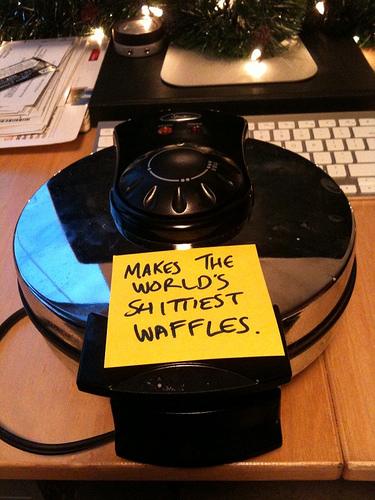 MAKES THE
WORLD'S
SHITTIEST
WAFFLES.